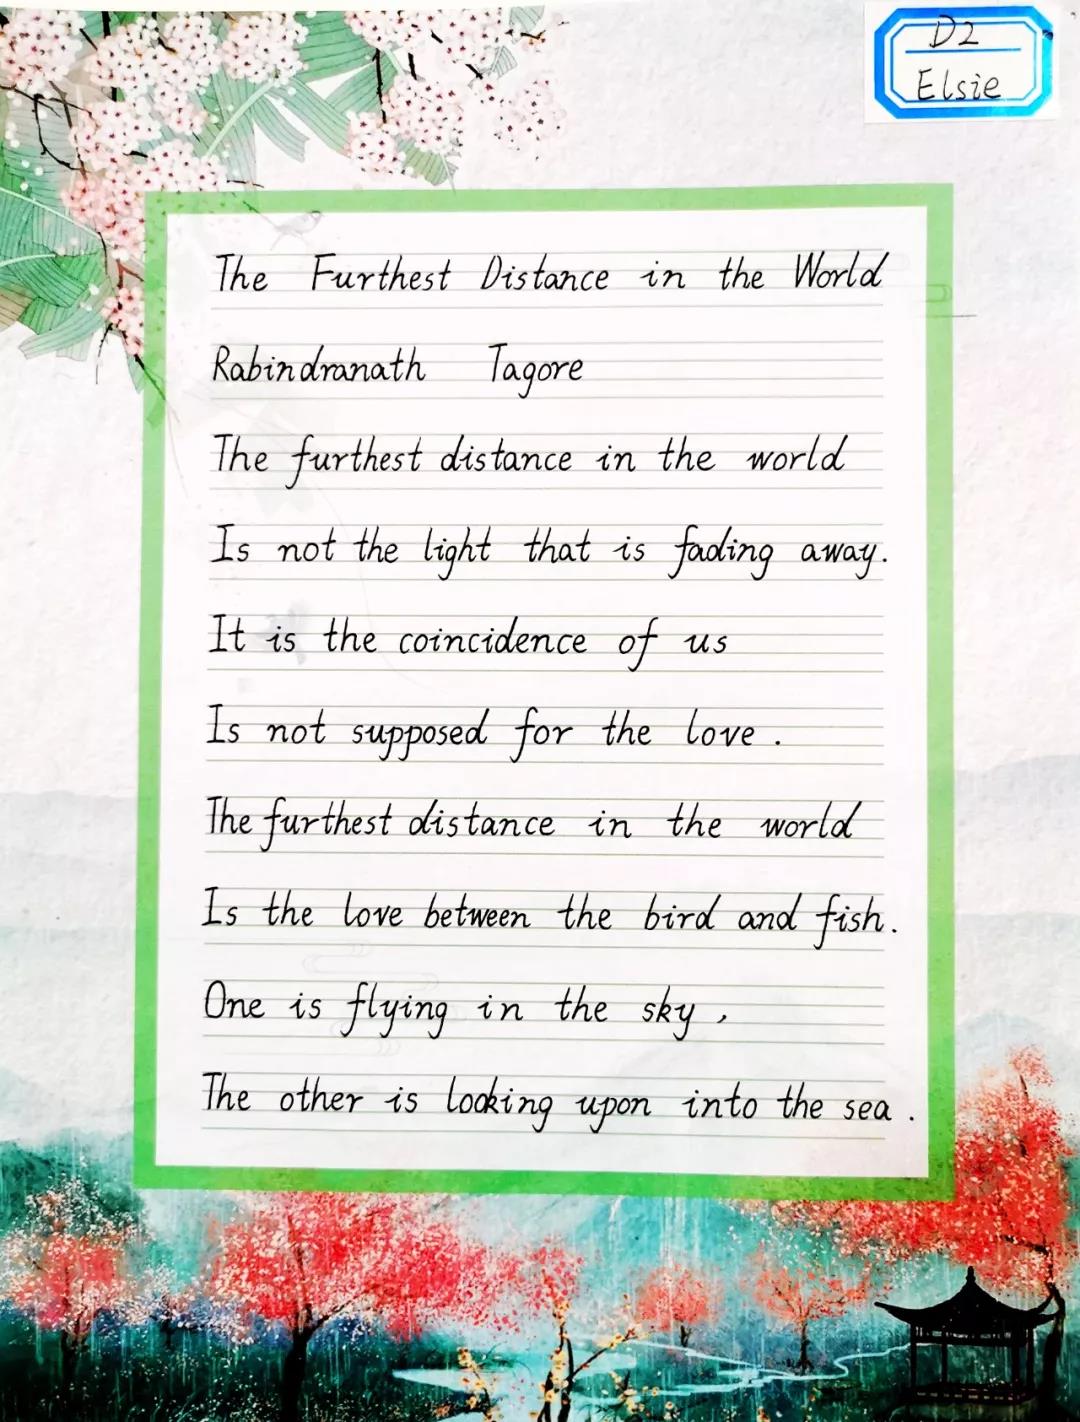 D2
Elsie
The Furthest Distance in the World
Rabindranath Tagore
The furthest distance in the world
Is not the light that is fading away.
It is the coincidence of us
Is not supposed for the love.
The furthest distance in the world
Is the love between the bird and fish.
One is flying in the sky,
The other is looking upon into the sea.